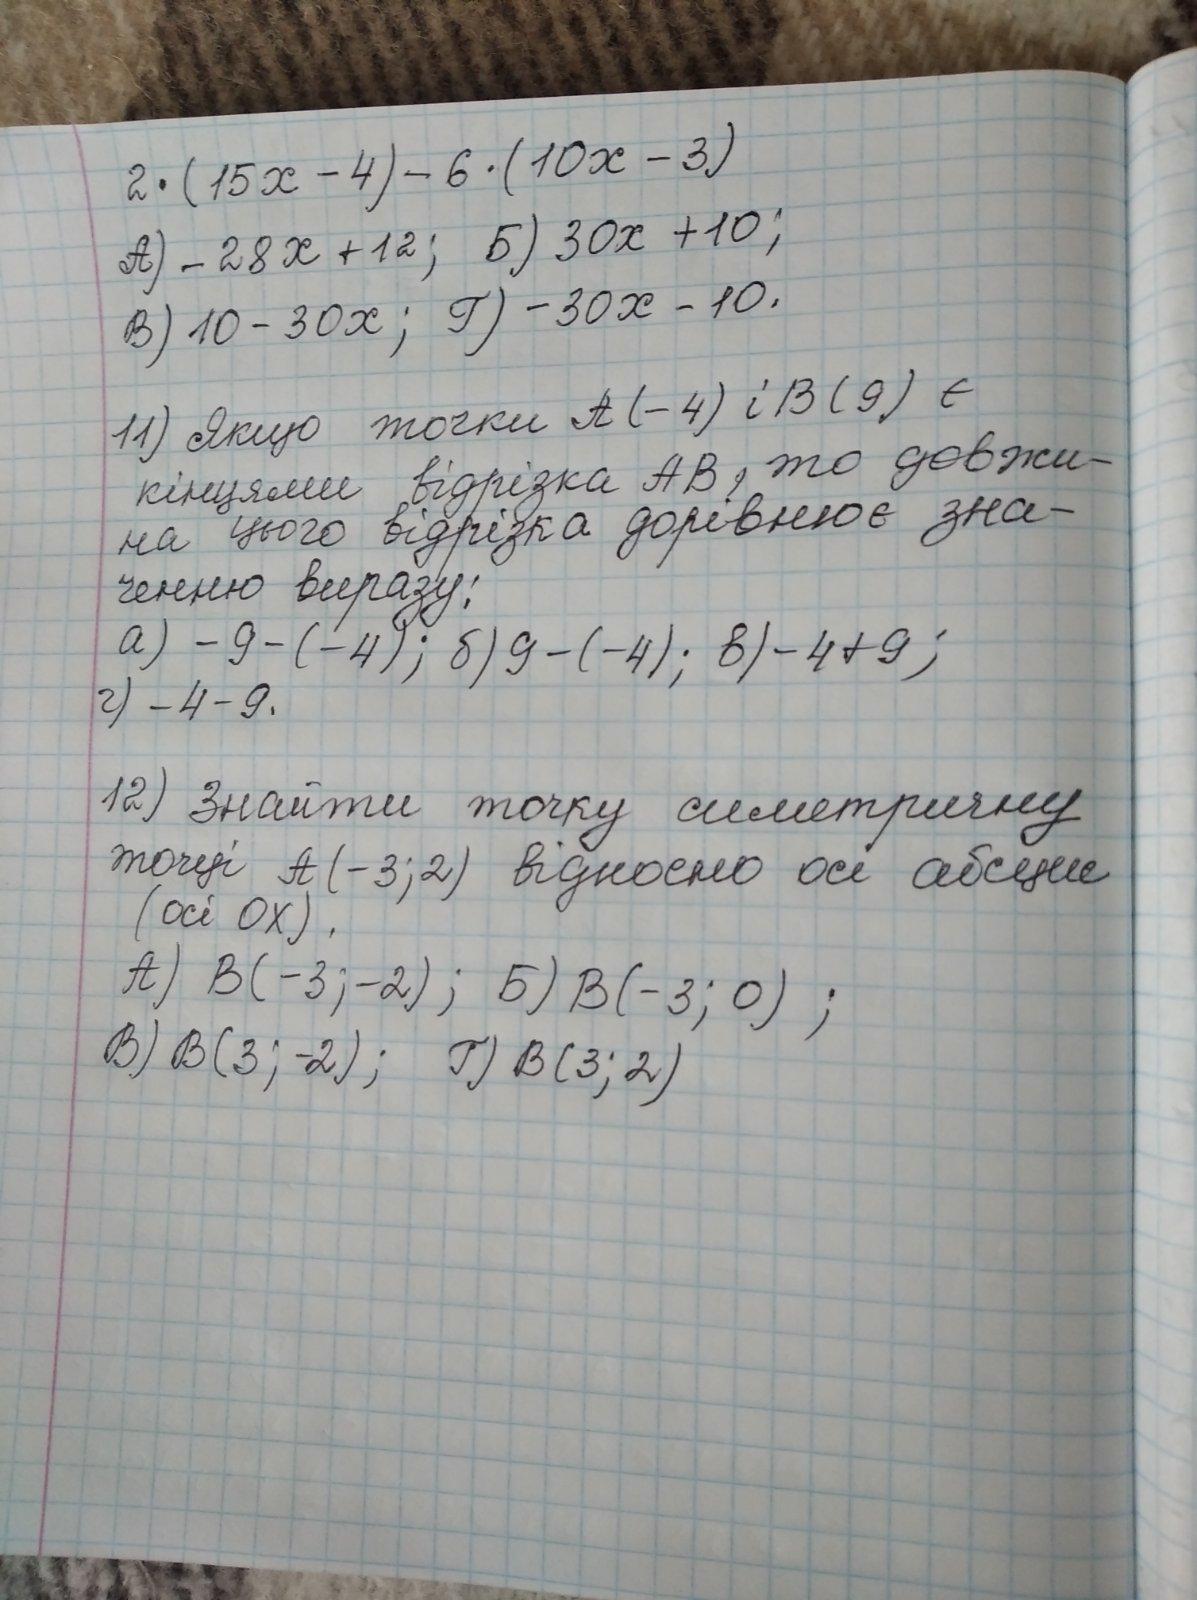 2·(15x-4)-6·(10x-3)
А) -28x+12; Б) 30x+10;
В) 10-30x; Г) -30x-10.
11) Якщо точки A(-4) і B(9) є
кінцями відрізка AB, то довжи-
на цього відрізка дорівнює зна-
ченню виразу:
а) -9-(-4); б) 9-(-4); в) -4+9;
г) -4-9.
12) Знайти точку симетричну
точці A(-3;2) відносно осі абсцис
(осі OX).
А) B(-3;-2); Б) B(-3; 0) ;
В) B(3;-2); Г) B(3;2)